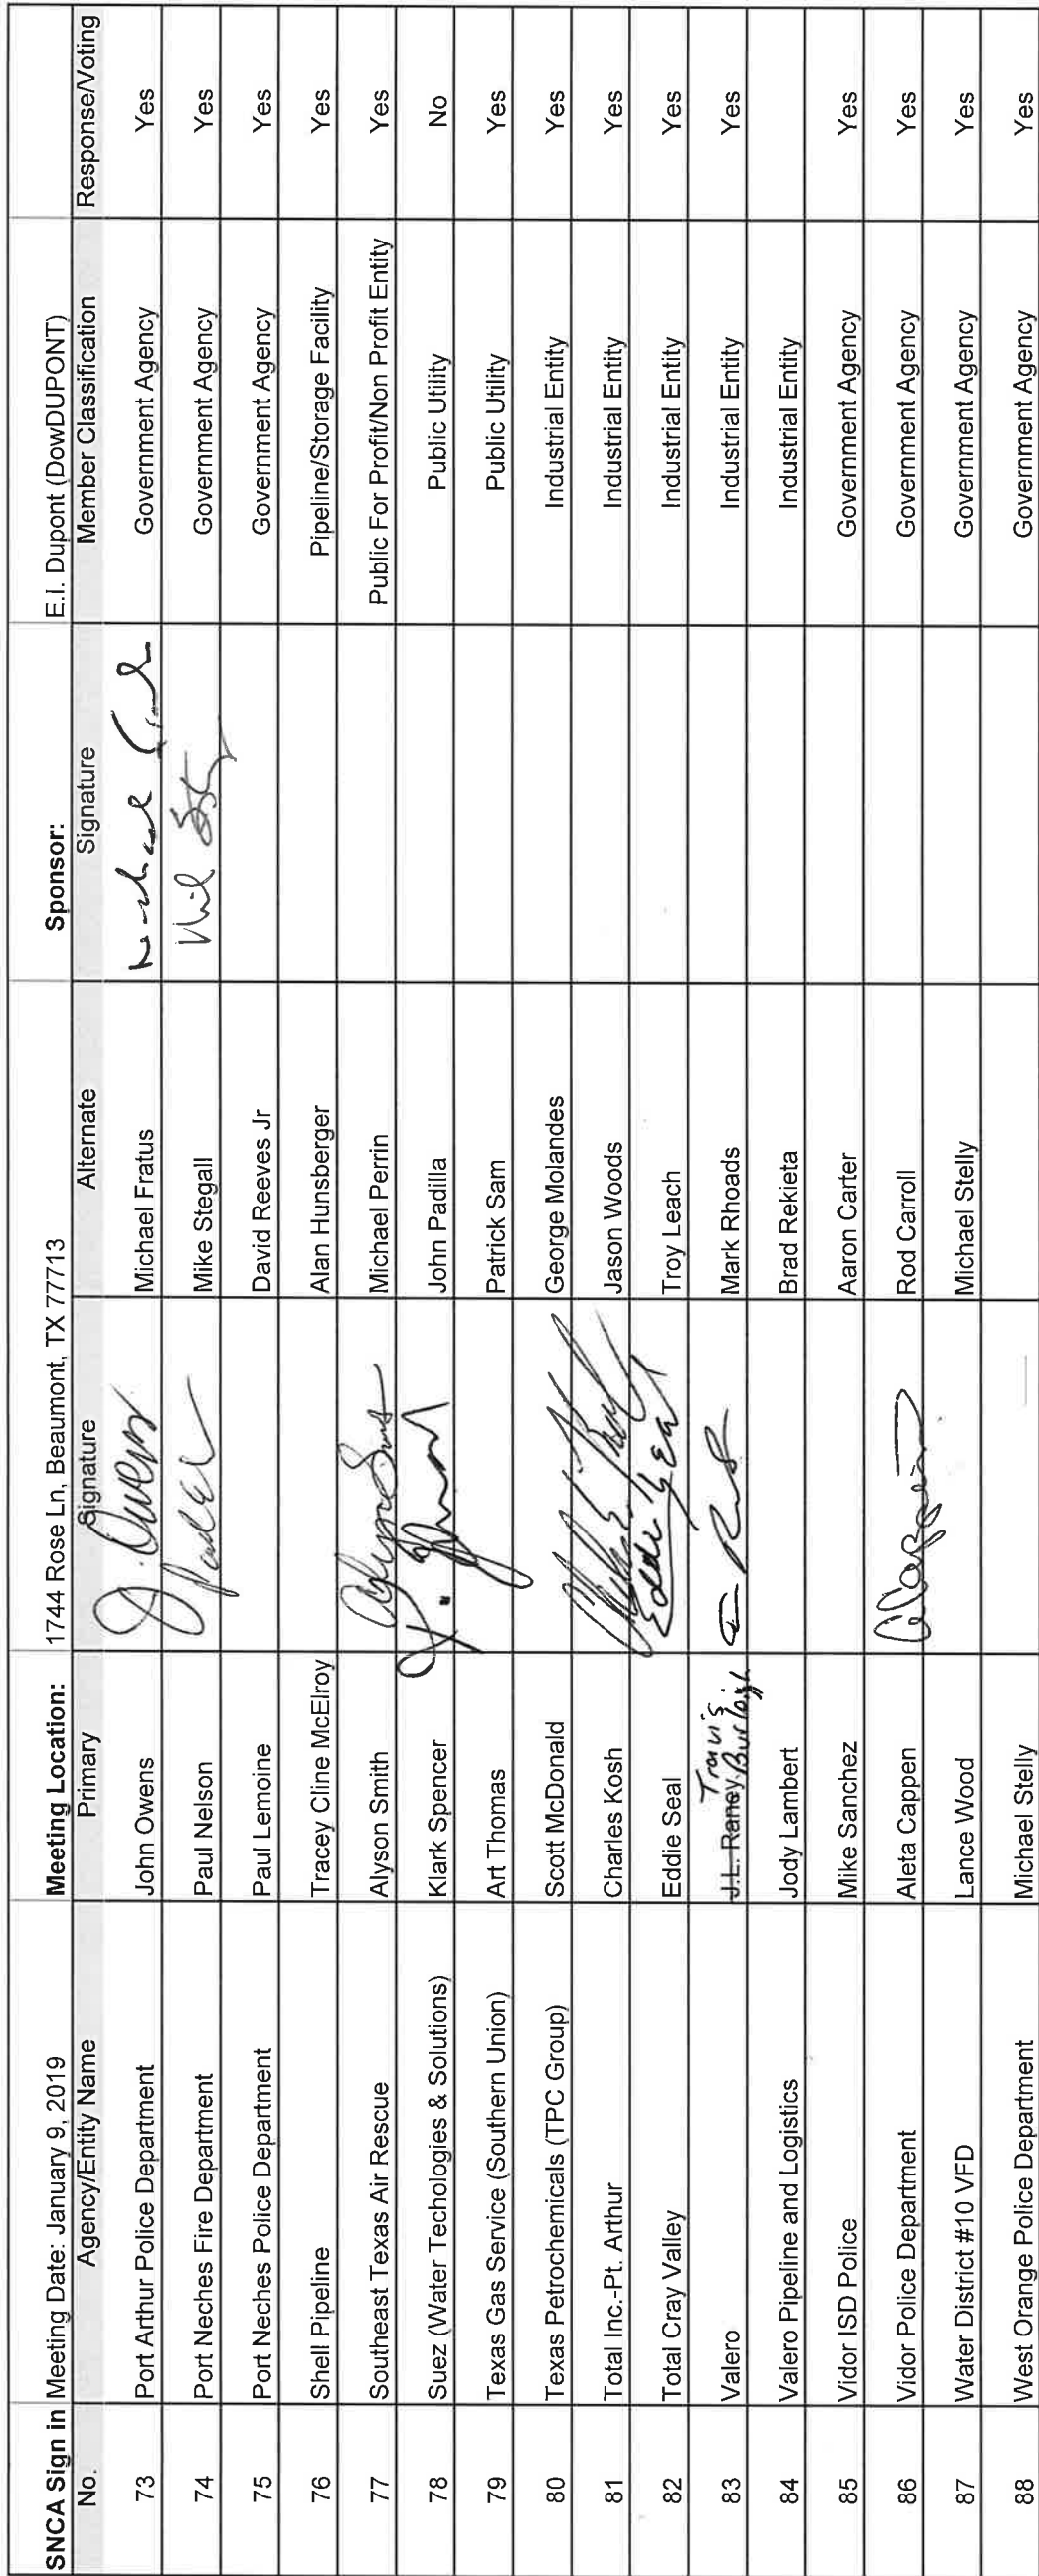 SNCA Sign in Meeting Date: January 9, 2019 Meeting Location: 1744 Rose Ln, Beaumont, TX 77713 Sponsor: E.I. Dupont (DowDUPONT)
No. Agency/Entity Name Primary Signature Alternate Signature Member Classification Response/Voting
73 Port Arthur Police Department John Owens J. Owens Michael Fratus Government Agency Yes
74 Port Neches Fire Department Paul Nelson Mike Stegall Government Agency Yes
75 Port Neches Police Department Paul Lemoine David Reeves Jr Government Agency Yes
76 Shell Pipeline Tracey Cline McElroy Alan Hunsberger Pipeline/Storage Facility Yes
77 Southeast Texas Air Rescue Alyson Smith Michael Perrin Public For Profit/Non Profit Entity Yes
78 Suez (Water Techologies & Solutions) Klark Spencer John Padilla Public Utility No
79 Texas Gas Service (Southern Union) Art Thomas Patrick Sam Public Utility Yes
80 Texas Petrochemicals (TPC Group) Scott McDonald George Molandes Industrial Entity Yes
81 Total Inc.-Pt. Arthur Charles Kosh Jason Woods Industrial Entity Yes
82 Total Cray Valley Eddie Seal Eddie Seal Troy Leach Industrial Entity Yes
83 Valero J.L. Raney Travis Burleigh Mark Rhoads Industrial Entity Yes
84 Valero Pipeline and Logistics Jody Lambert Brad Rekieta Industrial Entity
85 Vidor ISD Police Mike Sanchez Aaron Carter Government Agency Yes
86 Vidor Police Department Aleta Cappen Rod Carroll Government Agency Yes
87 Water District #10 VFD Lance Wood Michael Stelly Government Agency Yes
88 West Orange Police Department Michael Stelly Government Agency Yes